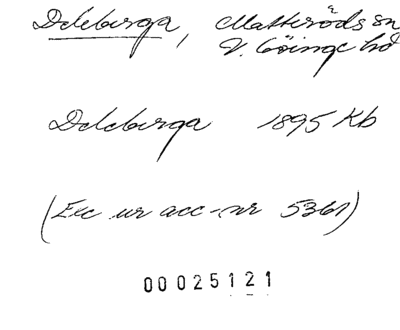 Dileberga, Matteröds sn
V. Göinge hd
Dileberga 1895 Kb
(Exc ur acc-nr 5361)
00025121